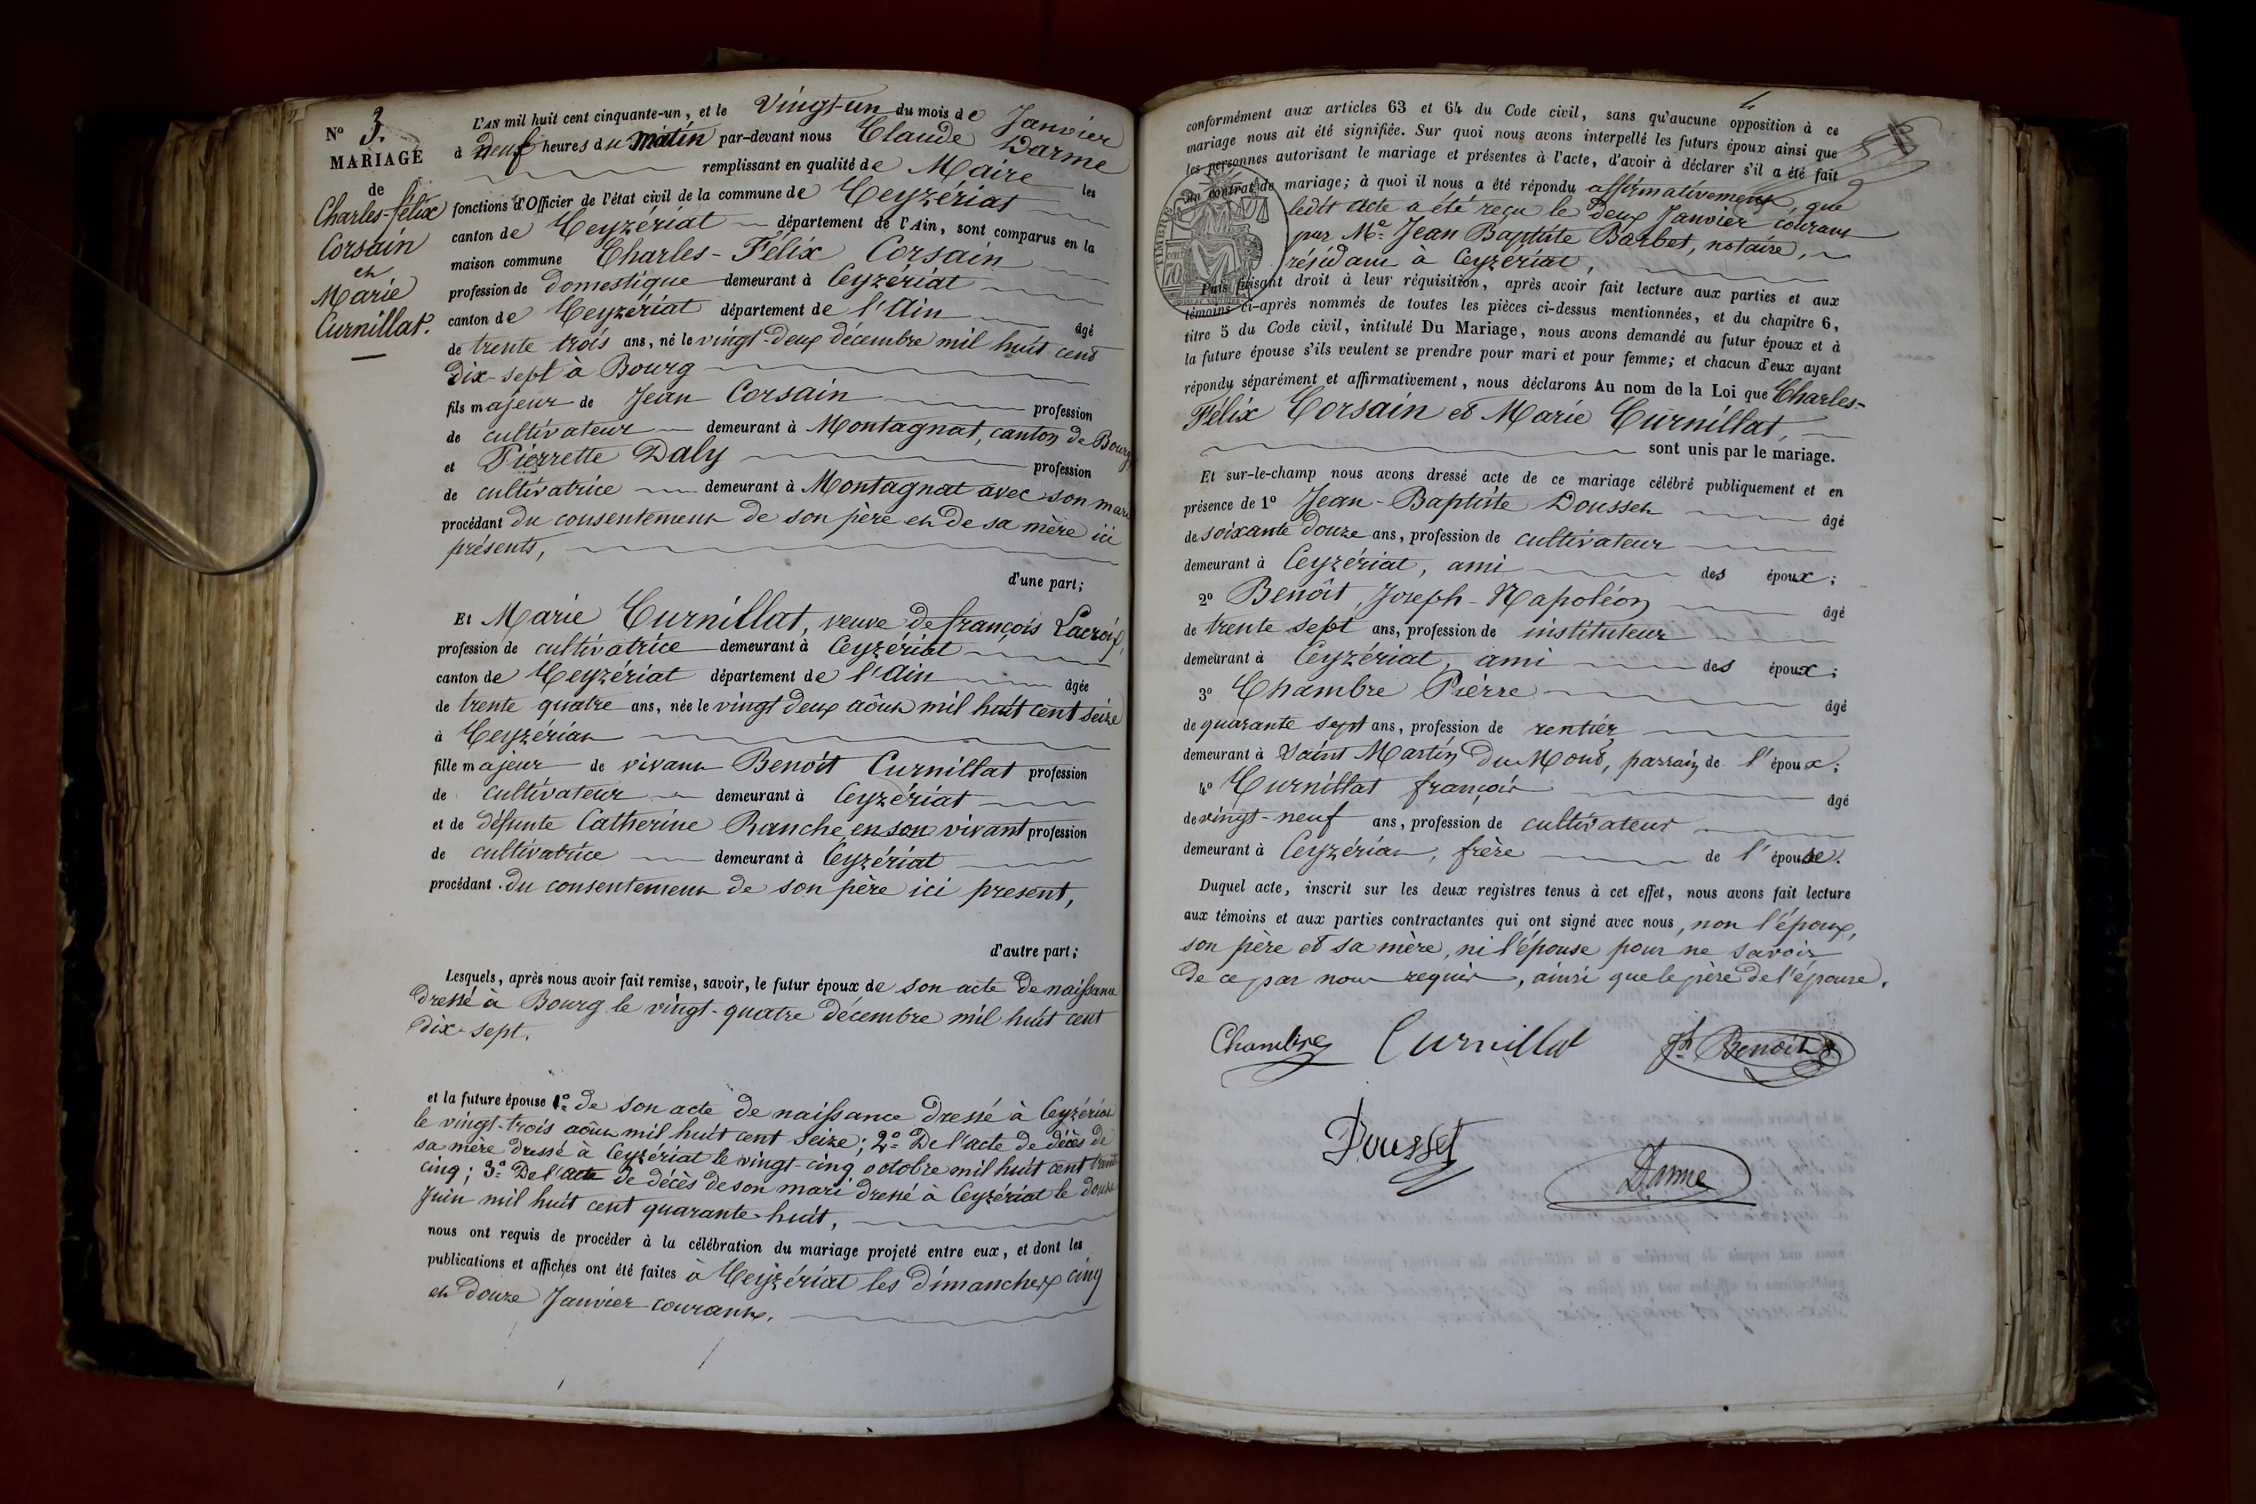 Nº 3.
MARIAGE
de
Charles-Félix
Corsain
et
Marie
Curnillat.
L'AN mil huit cent cinquante-un, et le Vingt-un du mois de Janvier
à neuf heures du matin par-devant nous Claude Darme
remplissant en qualité de Maire les
fonctions d'Officier de l'état civil de la commune de Ceyzériat
canton de Ceyzériat département de l'Ain, sont comparus en la
maison commune Charles-Félix Corsain
profession de domestique demeurant à Ceyzériat
canton de Ceyzériat département de l'Ain âgé
de trente trois ans, né le vingt-deux décembre mil huit cent
dix-sept à Bourg
fils majeur de Jean Corsain profession
de cultivateur demeurant à Montagnat, canton de Bourg
et Pierrette Daly profession
de cultivatrice demeurant à Montagnat avec son mari
procédant du consentement de son père et de sa mère ici
présents,
d'une part;
Et Marie Curnillat, veuve de françois Lacroix,
profession de cultivatrice demeurant à Ceyzériat
canton de Ceyzériat département de l'Ain âgée
de trente quatre ans, née le vingt deux août mil huit cent seize
à Ceyzériat
fille majeur de vivant Benoît Curnillat profession
de cultivateur demeurant à Ceyzériat
et de défunte Catherine Ranche, en son vivant profession
de cultivatrice demeurant à Ceyzériat
procédant du consentement de son père ici present,
d'autre part;
Lesquels, après nous avoir fait remise, savoir, le futur époux de son acte de naissance
dressé à Bourg le vingt-quatre décembre mil huit cent
dix-sept.
et la future épouse 1º de son acte de naissance dressé à Ceyzériat
le vingt-trois août mil huit cent seize; 2º De l'acte de décès de
sa mère dressé à Ceyzériat le vingt-cinq octobre mil huit cent trente
cinq; 3º De l'acte de décès de son mari dressé à Ceyzériat le douze
Juin mil huit cent quarante-huit,
nous ont requis de procéder à la célébration du mariage projeté entre eux, et dont les
publications et affiches ont été faites à Ceyzériat les dimanches cinq
et douze Janvier courant.
4
conformément aux articles 63 et 64 du Code civil, sans qu'aucune opposition à ce
mariage nous ait été signifiée. Sur quoi nous avons interpellé les futurs époux ainsi que
les personnes autorisant le mariage et présentes à l'acte, d'avoir à déclarer s'il a été fait
un contrat de mariage; à quoi il nous a été répondu affirmativement, que
ledit acte a été reçu le deux Janvier courant
par Me Jean Baptiste Barbet, notaire,
résidant à Ceyzériat,
TIMBRE
70
Puis faisant droit à leur réquisition, après avoir fait lecture aux parties et aux
témoins ci-après nommés de toutes les pièces ci-dessus mentionnées, et du chapitre 6,
titre 5 du Code civil, intitulé Du Mariage, nous avons demandé au futur époux et à
la future épouse s'ils veulent se prendre pour mari et pour femme; et chacun d'eux ayant
répondu séparément et affirmativement, nous déclarons Au nom de la Loi que Charles-
Félix Corsain et Marie Curnillat,
sont unis par le mariage.
Et sur-le-champ nous avons dressé acte de ce mariage célébré publiquement et en
présence de 1º Jean-Baptiste Dousset âgé
de soixante douze ans, profession de cultivateur
demeurant à Ceyzériat, ami des époux;
2º Benoît, Joseph-Napoléon âgé
de trente sept ans, profession de instituteur
demeurant à Ceyzériat, ami des époux;
3º Chambre Pierre âgé
de quarante sept ans, profession de rentier
demeurant à Saint Martin Du Mont, parrain de l'époux;
4º Curnillat françois âgé
de vingt-neuf ans, profession de cultivateur
demeurant à Ceyzériat, frère de l'épouse.
Duquel acte, inscrit sur les deux registres tenus à cet effet, nous avons fait lecture
aux témoins et aux parties contractantes qui ont signé avec nous, non l'époux,
son père et sa mère, ni l'épouse pour ne savoir
de ce par nous requis, ainsi que le père de l'épouse.
Chambre Curnillat Jh Benoit
Dousset
Darme